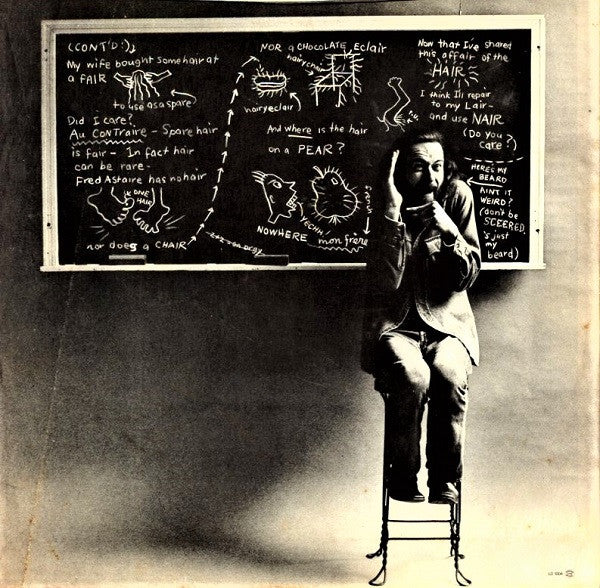 (CONT'D:)
My wife bought some hair at
a FAIR
to use as a spare
Did I care?
Au CONTraire — Spare hair
is fair — In fact hair
can be rare —
Fred Astaire has no hair
ONE HAIR
nor does a CHAIR
NOR a CHOCOLATE Eclair
hairy chair
hairy eclair
And where is the hair
on a PEAR?
YECHH!
NOWHERE mon frère
Now that I've shared
this affair of the
HAIR
I think I'll repair
to my Lair —
and use NAIR
(Do you
care?)
HERE'S MY
BEARD
AINT IT
WEIRD?
(don't be
SCEERED,
's just
my
beard)